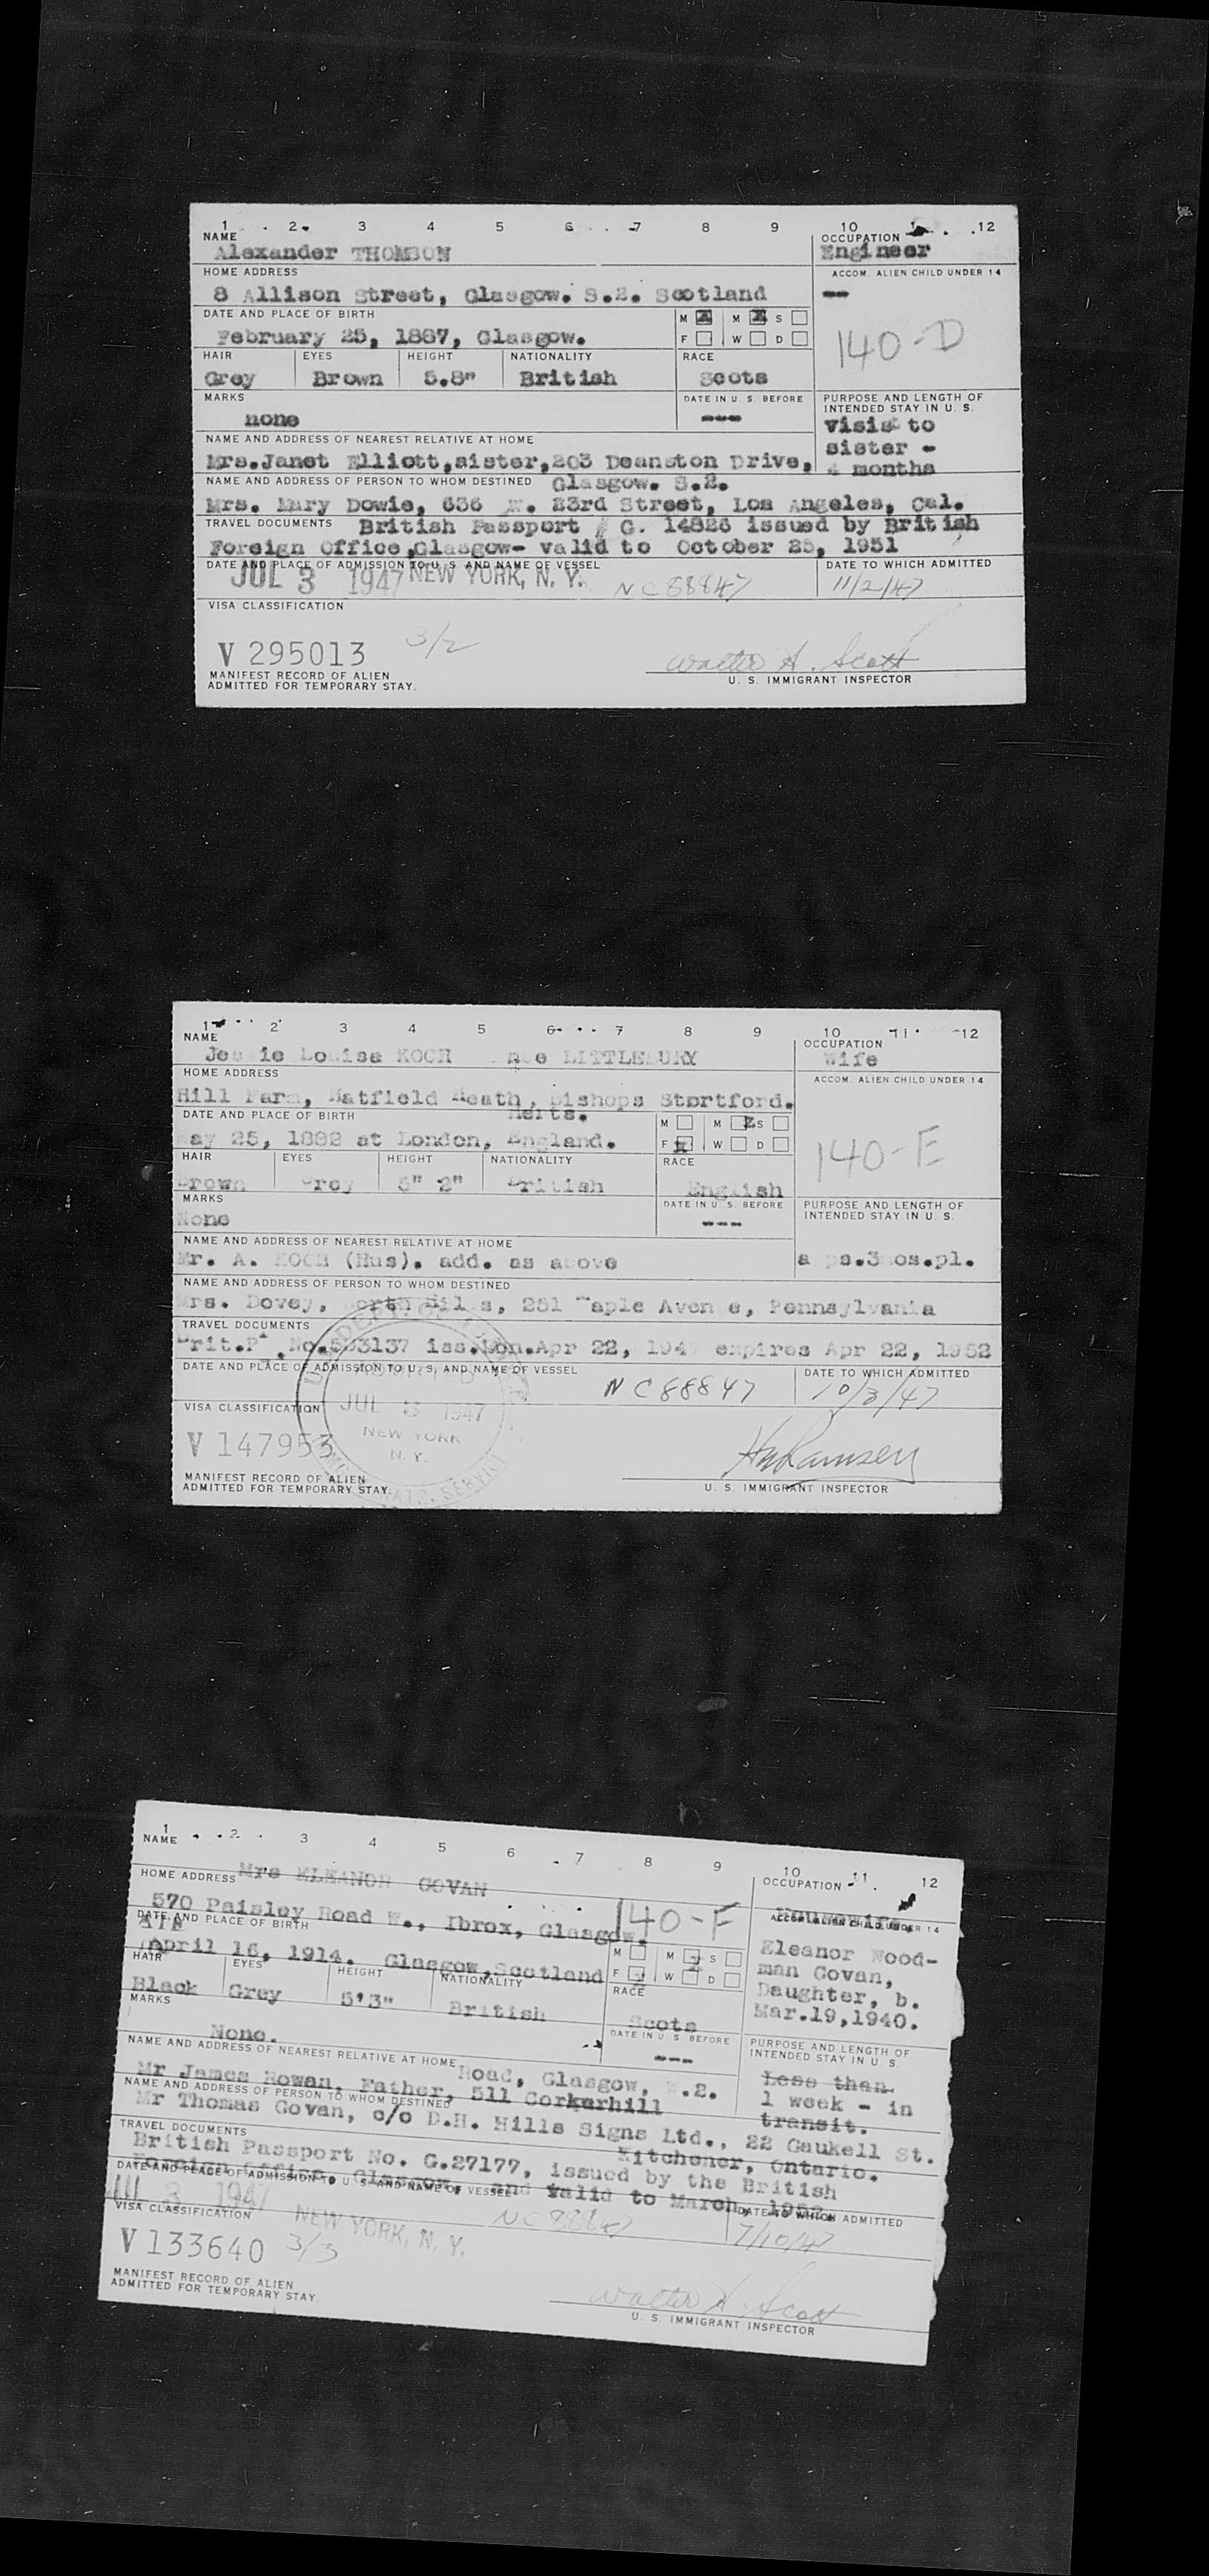 1 2 3 4 5 6 7 8 9 10 12
NAME
Alexander THOMSON
OCCUPATION
Engineer
HOME ADDRESS
8 Allison Street, Glasgow. S.2. Scotland
ACCOM. ALIEN CHILD UNDER 14
--
DATE AND PLACE OF BIRTH
February 25, 1887, Glasgow.
M M S
F W D
140-D
HAIR EYES HEIGHT NATIONALITY RACE
Grey Brown 5.8" British Scots
MARKS
none
DATE IN U. S. BEFORE
---
PURPOSE AND LENGTH OF
INTENDED STAY IN U. S.
visit to
sister -
4 months
NAME AND ADDRESS OF NEAREST RELATIVE AT HOME
Mrs.Janet Elliott,sister,203 Deanston Drive,
Glasgow. S.2.
NAME AND ADDRESS OF PERSON TO WHOM DESTINED
Mrs. Mary Dowie, 636 W. 23rd Street, Los Angeles, Cal.
TRAVEL DOCUMENTS
British Passport # G. 14826 issued by British
Foreign Office,Glasgow- valid to October 25, 1951
DATE AND PLACE OF ADMISSION TO U. S. AND NAME OF VESSEL
JUL 3 1947 NEW YORK, N. Y. NC88847
DATE TO WHICH ADMITTED
11/2/47
VISA CLASSIFICATION
V 295013 3/2
Walter H. Scott
MANIFEST RECORD OF ALIEN
ADMITTED FOR TEMPORARY STAY.
U. S. IMMIGRANT INSPECTOR
1 2 3 4 5 6 7 8 9 10 11 12
NAME
Jessie Louisa KOCH nee LITTLEBURY
OCCUPATION
Wife
HOME ADDRESS
Hill Farm, Hatfield Heath, Bishops Stortford.
Herts.
ACCOM. ALIEN CHILD UNDER 14
DATE AND PLACE OF BIRTH
May 25, 1882 at London, England.
M M S
F W D
140-E
HAIR EYES HEIGHT NATIONALITY RACE
Brown Grey 5" 2" British English
MARKS
None
DATE IN U. S. BEFORE
---
PURPOSE AND LENGTH OF
INTENDED STAY IN U. S.
NAME AND ADDRESS OF NEAREST RELATIVE AT HOME
Mr. A. KOCH (Hus). add. as above
NAME AND ADDRESS OF PERSON TO WHOM DESTINED
Mrs. Dovey, North Hills, 251 Maple Avenue, Pennsylvania
TRAVEL DOCUMENTS
Brit.P No.593137 iss.Lon.Apr 22, 1947 expires Apr 22, 1952
DATE AND PLACE OF ADMISSION TO U. S. AND NAME OF VESSEL
NC88847
DATE TO WHICH ADMITTED
10/3/47
ADMITTED
JUL 3 1947
NEW YORK
N. Y.
VISA CLASSIFICATION
V 147953
MANIFEST RECORD OF ALIEN
ADMITTED FOR TEMPORARY STAY.
U. S. IMMIGRANT INSPECTOR
1 2 3 4 5 6 7 8 9 10 11 12
NAME
Mrs ELEANOR GOVAN
OCCUPATION
Housewife
HOME ADDRESS
570 Paisley Road W., Ibrox, Glasgow.
ACCOM. ALIEN CHILD UNDER 14
Eleanor Wood-
man Govan,
Daughter, b.
Mar.19,1940.
140-F
DATE AND PLACE OF BIRTH
April 16, 1914. Glasgow,Scotland
M M S
F W D
HAIR EYES HEIGHT NATIONALITY RACE
Black Grey 5'3" British Scots
MARKS
None.
DATE IN U. S. BEFORE
---
PURPOSE AND LENGTH OF
INTENDED STAY IN U. S.
Less than
1 week - in
transit.
NAME AND ADDRESS OF NEAREST RELATIVE AT HOME
Road, Glasgow, .2.
Mr James Rowan, Father, 511 Corkerhill
NAME AND ADDRESS OF PERSON TO WHOM DESTINED
Mr Thomas Govan, c/o D.H. Hills Signs Ltd., 22 Gaukell St.
Kitchener, Ontario.
TRAVEL DOCUMENTS
British Passport No. G.27177, issued by the British
Foreign Office, Glasgow, and valid to March, 1952.
DATE AND PLACE OF ADMISSION TO U. S. AND NAME OF VESSEL
JUL 3 1947 NEW YORK, N. Y. NC88847
DATE TO WHICH ADMITTED
7/10/47
VISA CLASSIFICATION
V 133640 3/3
Walter H. Scott
MANIFEST RECORD OF ALIEN
ADMITTED FOR TEMPORARY STAY.
U. S. IMMIGRANT INSPECTOR